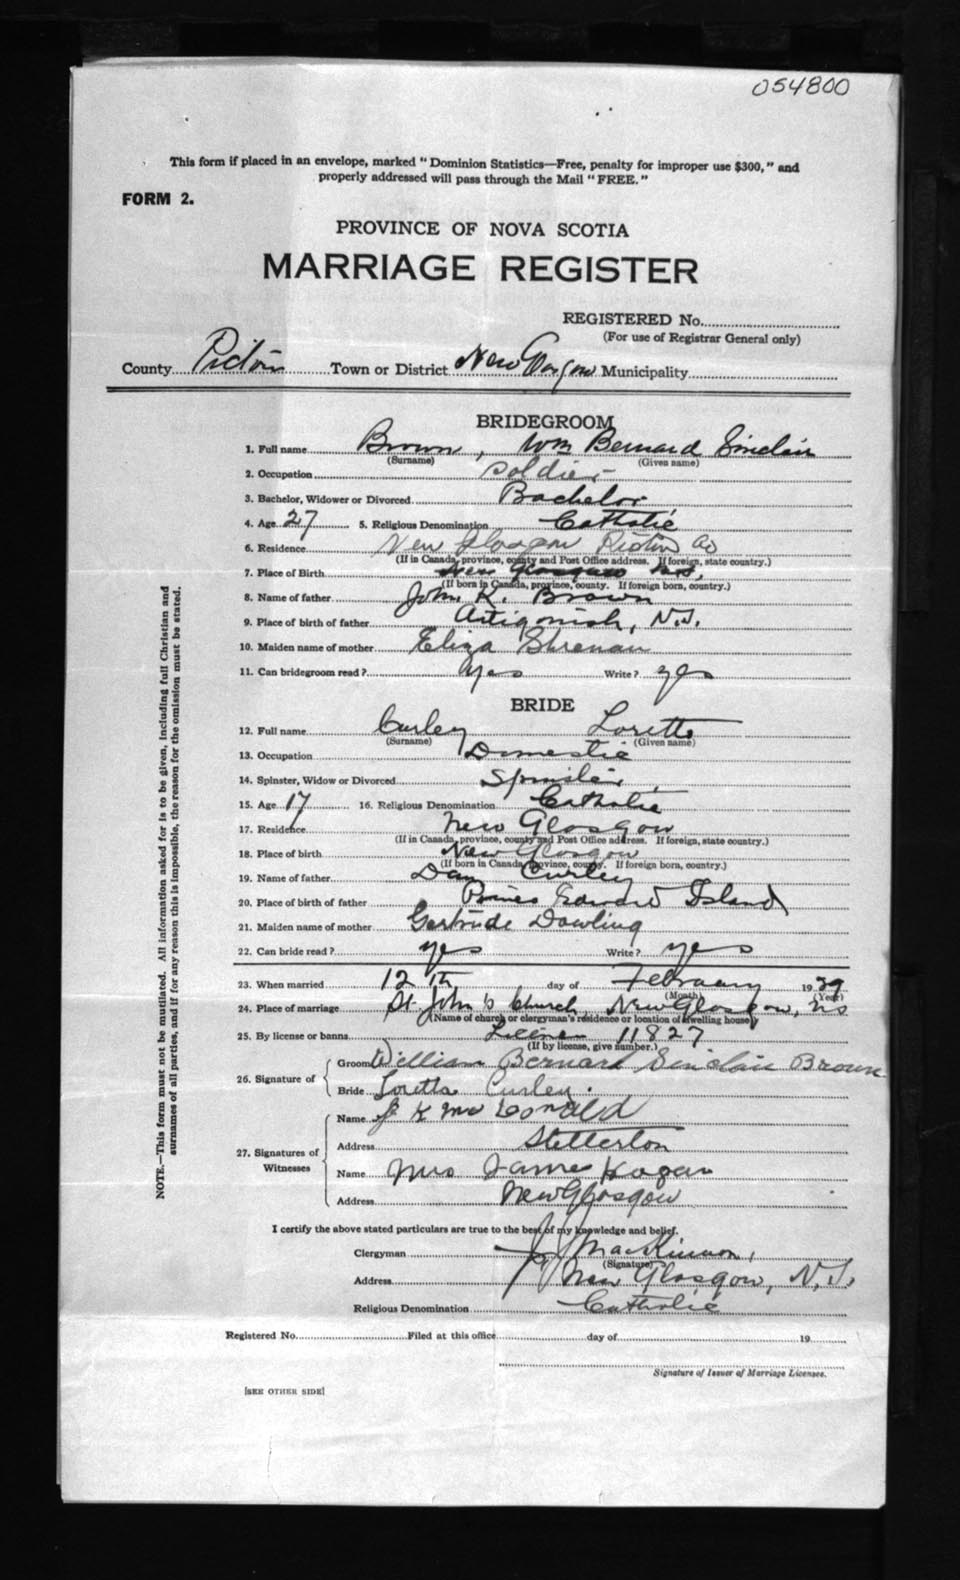 054800
This form if placed in an envelope, marked "Dominion Statistics—Free, penalty for improper use $300," and
properly addressed will pass through the Mail "FREE."
FORM 2.
PROVINCE OF NOVA SCOTIA
MARRIAGE REGISTER
REGISTERED No.
(For use of Registrar General only)
County Pictou Town or District New Glasgow Municipality
BRIDEGROOM
1. Full name Brown, Wm Bernard Sinclair
(Surname) (Given name)
2. Occupation Soldier
3. Bachelor, Widower or Divorced Bachelor
4. Age 27 5. Religious Denomination Catholic
6. Residence New Glasgow Pictou Co
(If in Canada, province, county and Post Office address. If foreign, state country.)
7. Place of Birth New Glasgow N.S.
(If born in Canada, province, county. If foreign born, country.)
8. Name of father John K. Brown
9. Place of birth of father Antigonish, N.S.
10. Maiden name of mother Eliza
11. Can bridegroom read? Yes Write? yes
BRIDE
12. Full name Curley Loretta
(Surname) (Given name)
13. Occupation Domestic
14. Spinster, Widow or Divorced Spinster
15. Age 17 16. Religious Denomination Catholic
17. Residence New Glasgow
(If in Canada, province, county and Post Office address. If foreign, state country.)
18. Place of birth New Glasgow
(If born in Canada, province, county. If foreign born, country.)
19. Name of father Dan Curley
20. Place of birth of father Prince Edward Island
21. Maiden name of mother Gertrude Dowling
22. Can bride read? yes Write? yes
23. When married 12th day of February 1939
(Month) (Year)
24. Place of marriage St. John's Church, New Glasgow, NS
(Name of church or clergyman's residence or location of dwelling house)
25. By license or banns License 11827
(If by license, give number.)
26. Signature of Groom William Bernard Sinclair Brown
Bride Loretta Curley.
27. Signatures of Witnesses Name J K McDonald
Address Stellerton
Name Mrs James Hogan
Address New Glasgow
I certify the above stated particulars are true to the best of my knowledge and belief.
Clergyman MacKinnon,
(Signature)
Address New Glasgow, N.S.
Religious Denomination Catholic
Registered No. Filed at this office day of 19
Signature of Issuer of Marriage Licenses.
[SEE OTHER SIDE]
NOTE.—This form must not be mutilated. All information asked for is to be given, including full Christian and
surnames of all parties, and if for any reason this is impossible, the reason for the omission must be stated.